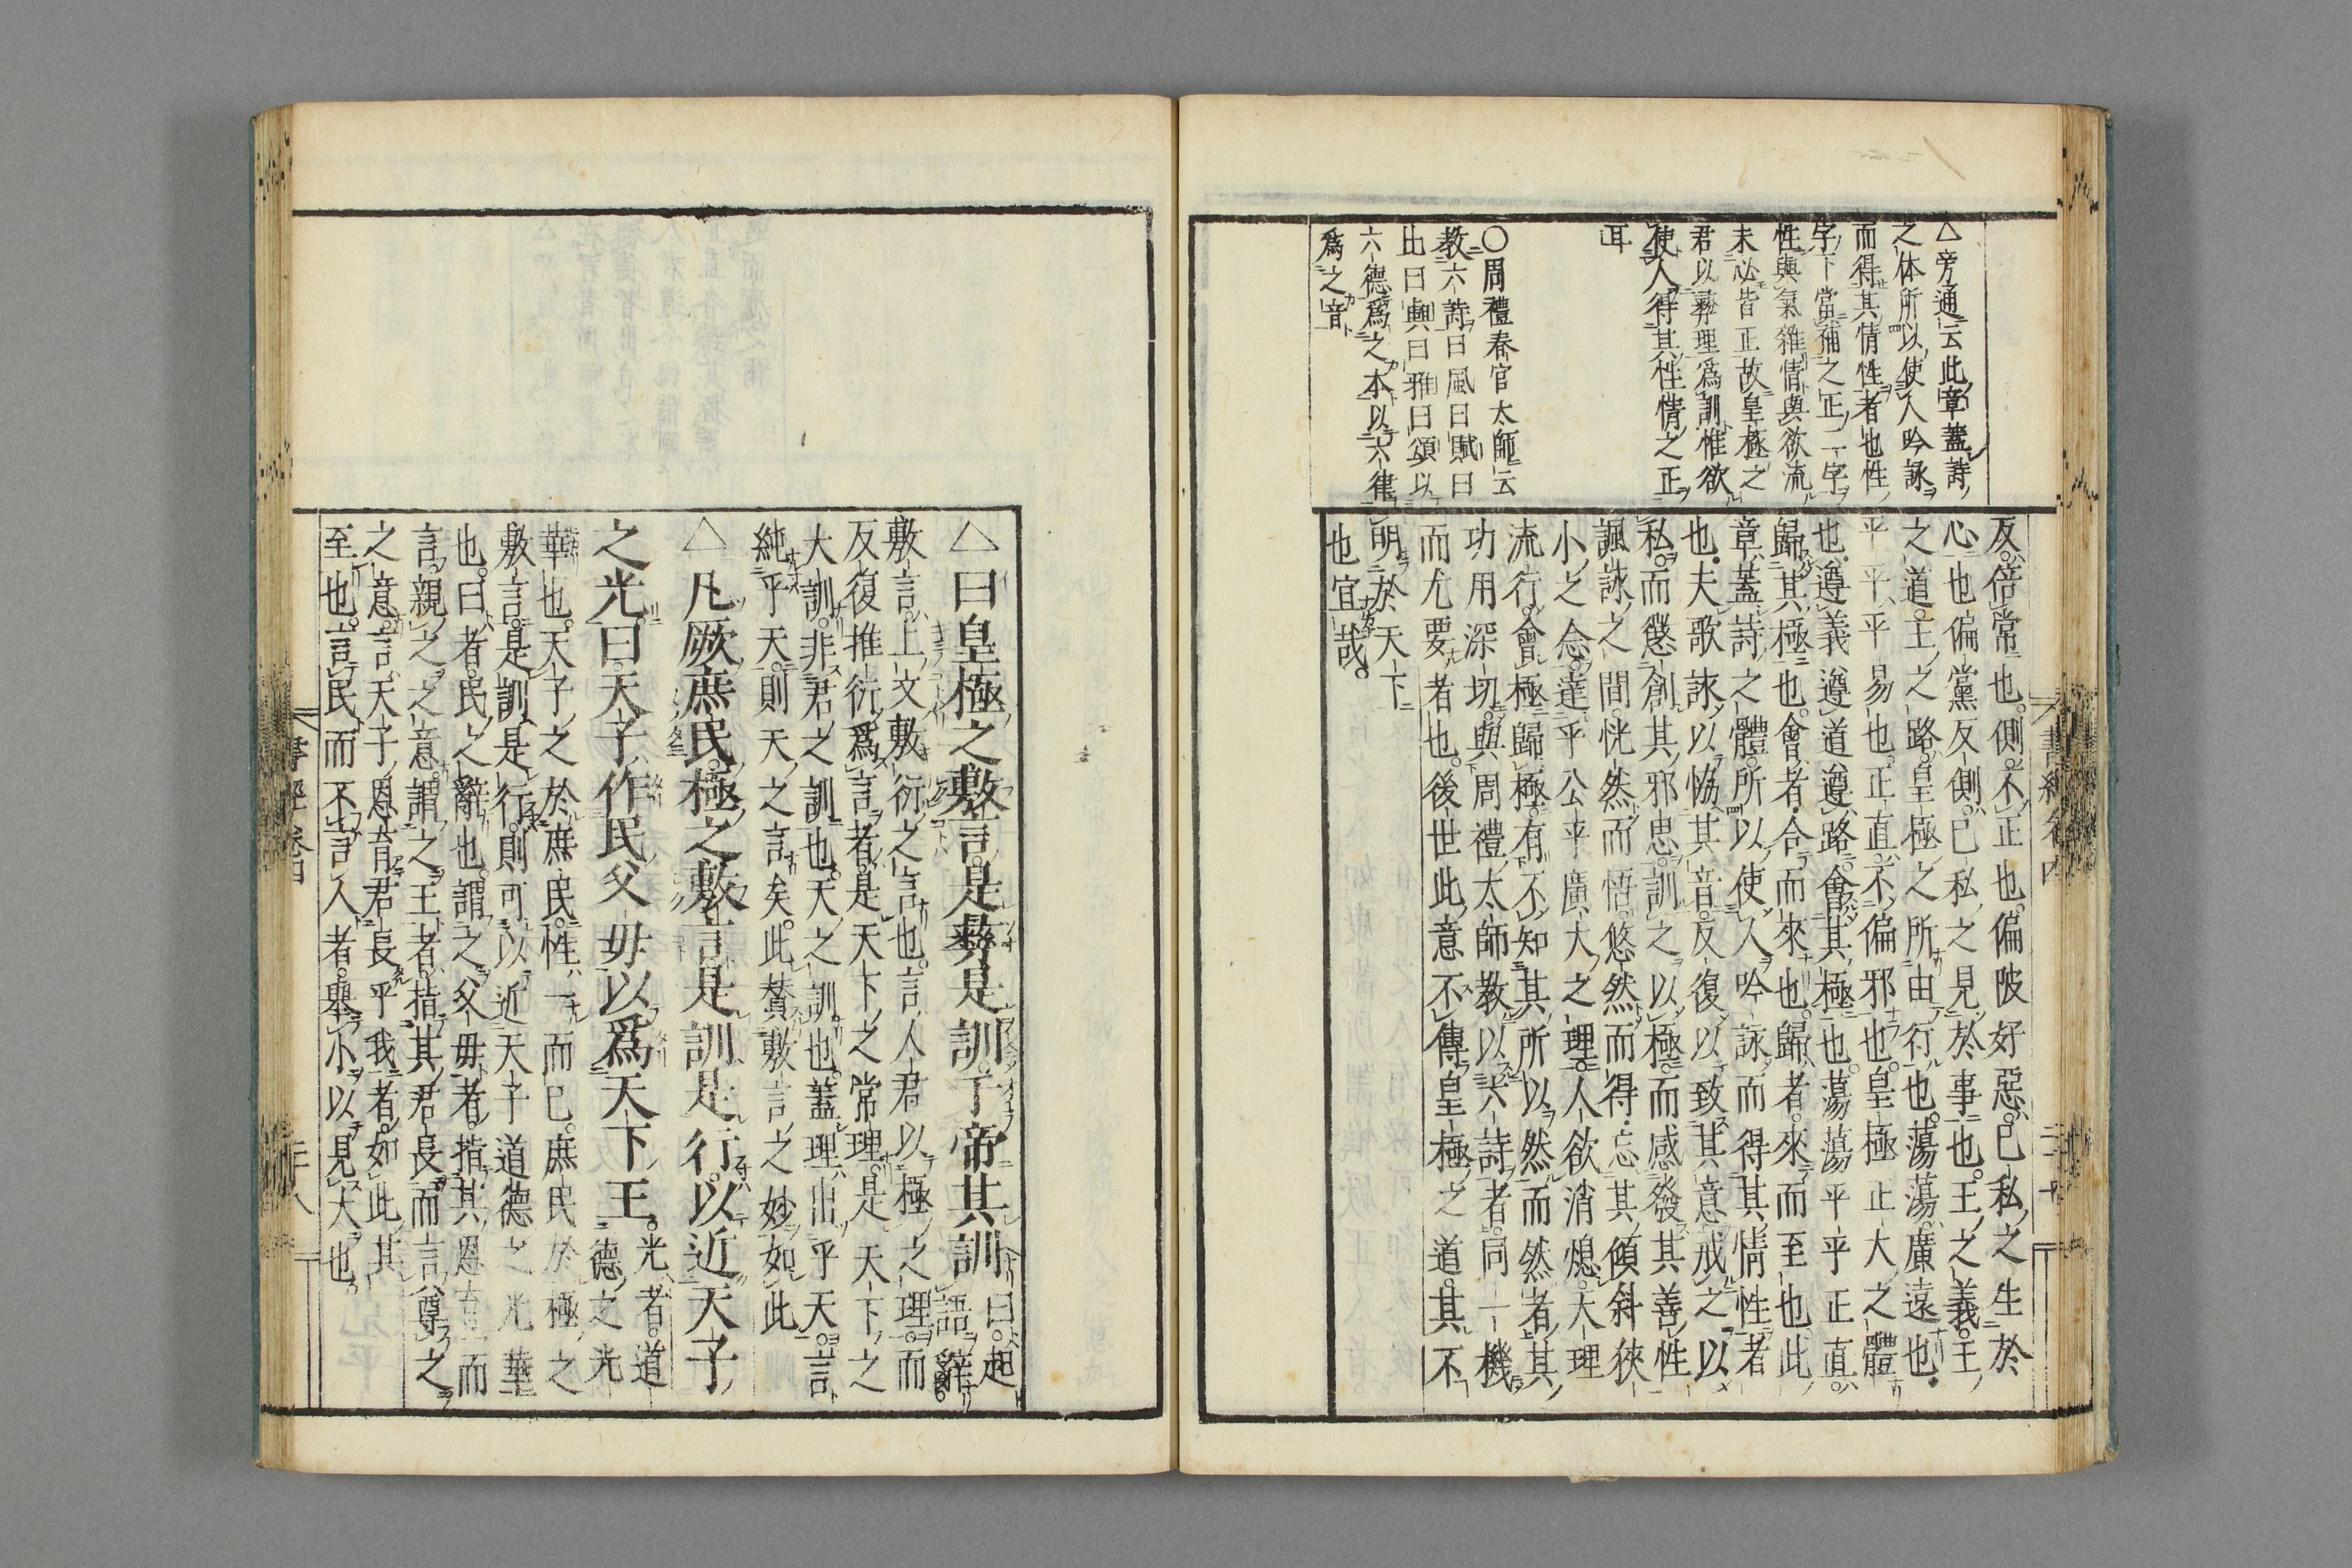 △旁通云此章蓋詩
之体所以使人吟詠
而得其情性者也性
字下當補之正二字
性與氣雜情與欲流
未必皆正故皇極之
君以彝理爲訓惟欲
使人得其性情之正
耳
〇周禮春官太師云
教六詩曰風曰賦曰
比曰興曰雅曰頌以
六德爲之本以六律
爲之音
反。倍常也。側。不正也。偏陂好惡。已私之生於
心也偏黨反側。已私之見於事也。王之義。王
之道。王之路。皇極之所由行也。蕩蕩。廣遠也。
平平。平易也。正直。不偏邪也。皇極正大之體
也。遵義遵道遵路。會其極也。蕩蕩平平正直。
歸其極也。會者。合而來也。歸者。來而至也。此
章。蓋詩之體。所以使人吟詠而得其情性者
也。夫歌詠以恊其音。反復以致其意。戒之以
私。而懲創其邪思。訓之以極。而感發其善性
諷詠之間。恍然而悟。悠然而得。忘其傾斜狹
小之念。達乎公平廣大之理。人欲消熄。大理
流行。會極歸極。有不知其所以然而然者。其
功用深切。與周禮太師教以六詩者。同一機
而尤要者也。後世此意不傳。皇極之道。其不
明於天下
也宜哉。
書經卷四
△曰皇極之敷言。是彝是訓。于帝其訓
曰。起
語辭。
敷言。上文敷衍之言也。言人君以極之理。而
反復推衍爲言者。是天下之常理。是天下之
大訓。非君之訓也。天之訓也。蓋理出乎天。言
純乎天。則天之言矣。此贊敷言之妙如此
△凡厥庶民。極之敷言是訓是行。以近天子
之光。曰天子作民父毋以爲天下王。
光者。道
德之光
華也。天子之於庶民。性一而已。庶民於極之
敷言。是訓是行。則可以近天子道德之光華
也。曰者。民之辭也。謂之父毋者。指其恩育而
言。親之之意。謂之王者。指其君長而言。尊之
之意。言天子恩育君長乎我者。如此其
至也。言民而不言人者。舉小以見大也。
書經卷四
二十八